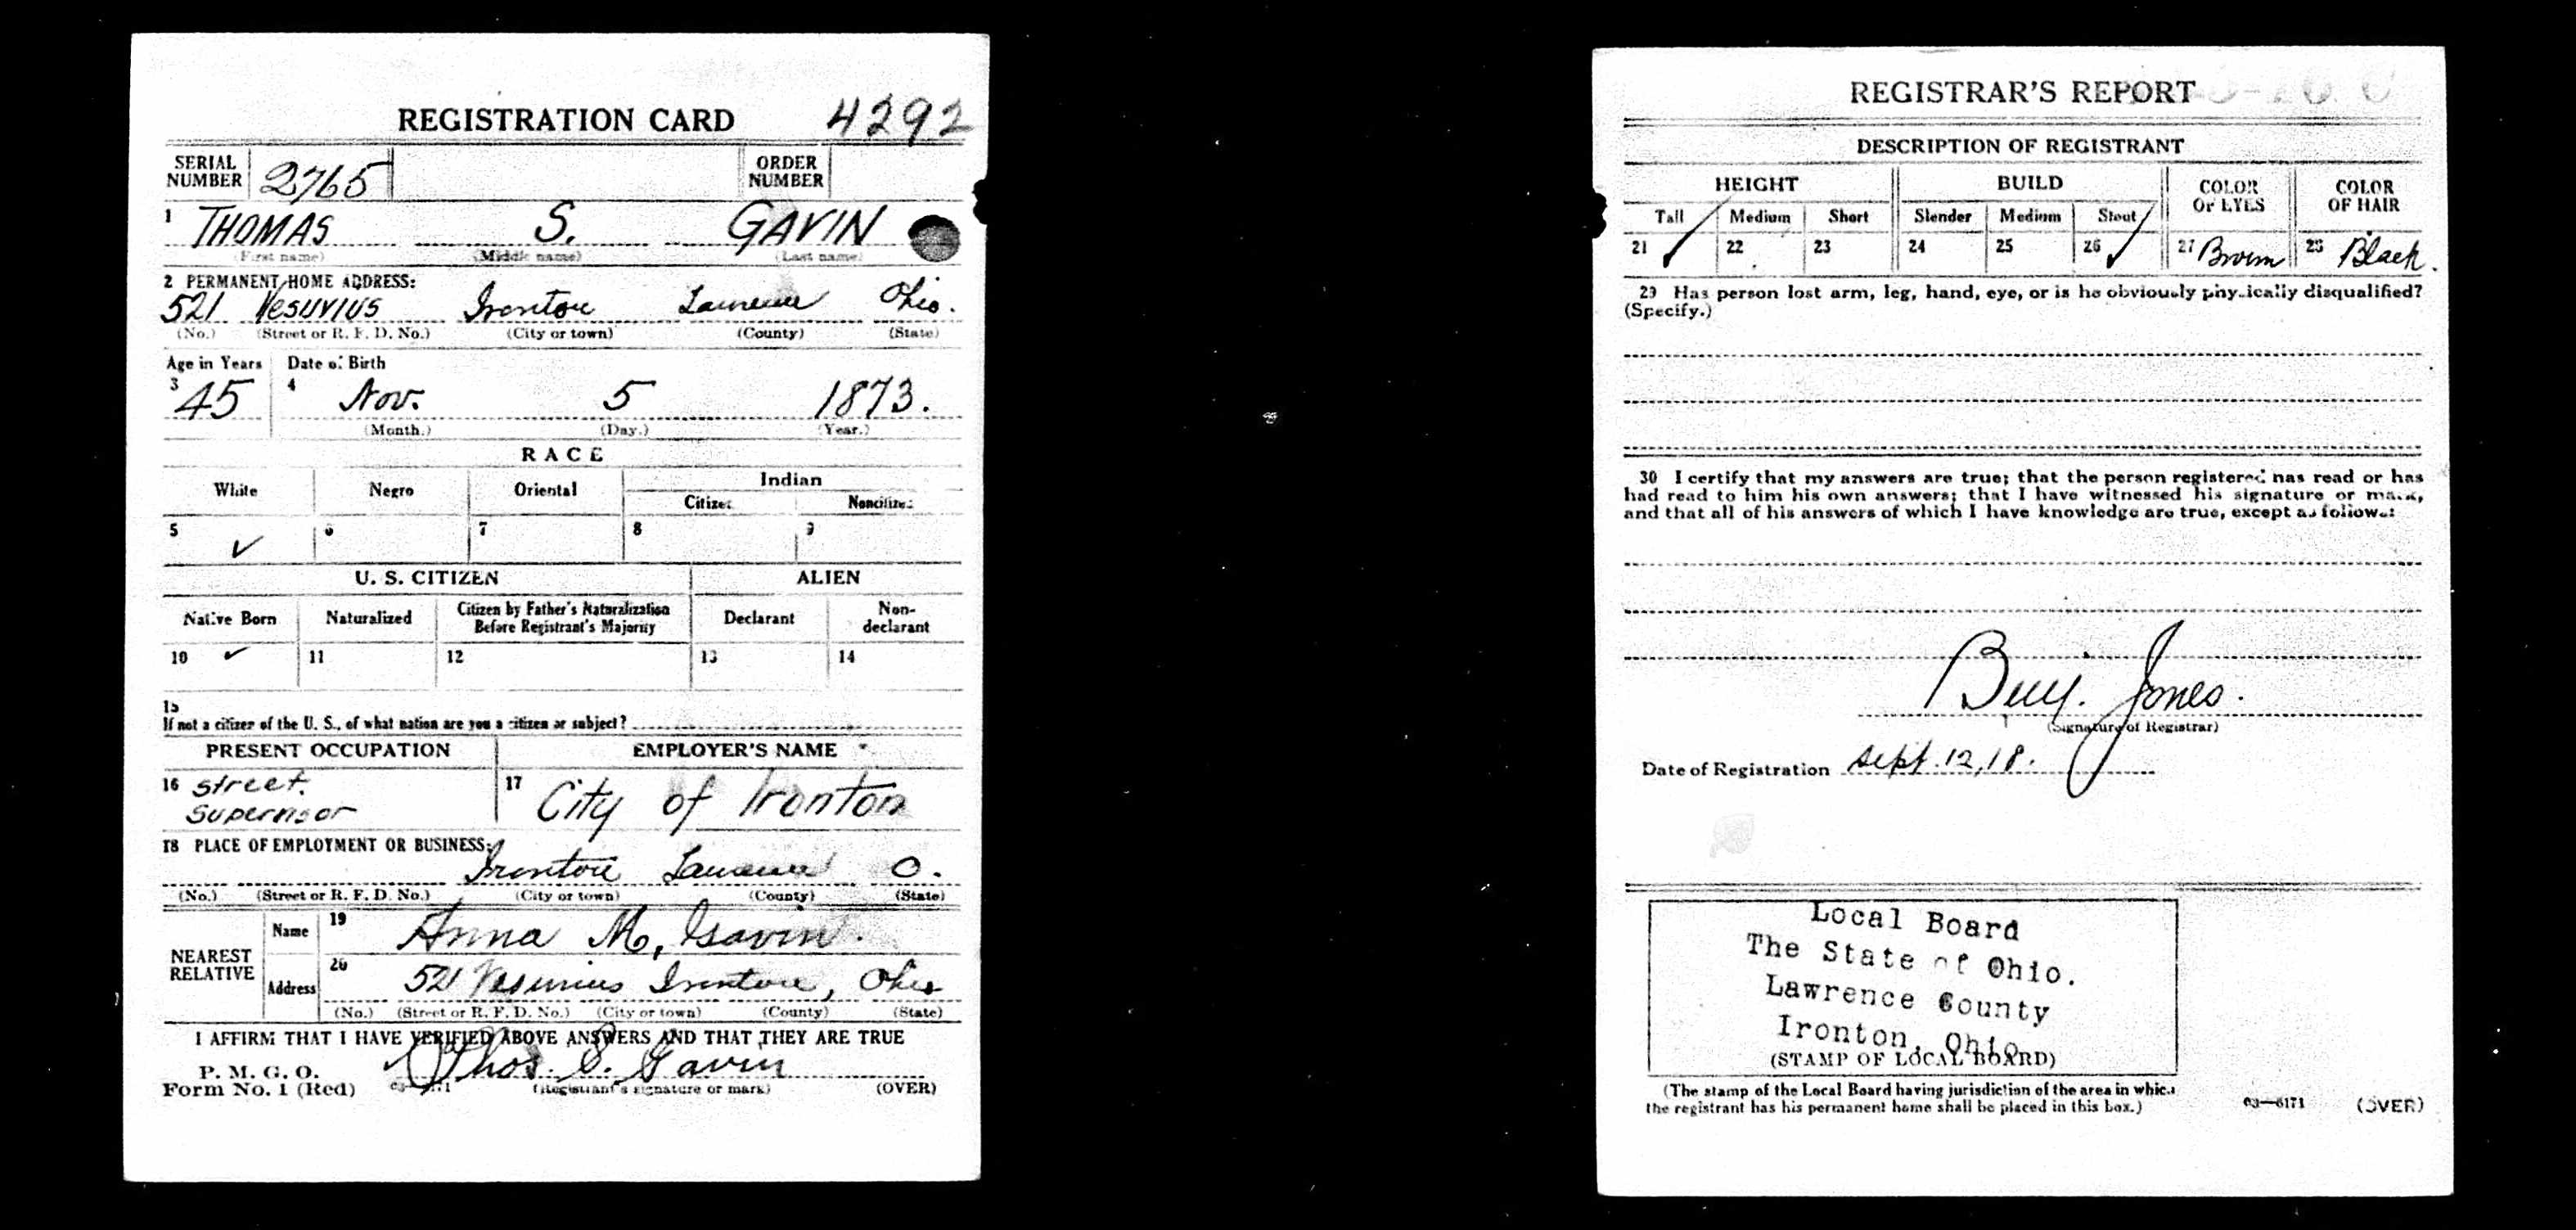 REGISTRATION CARD 4292
SERIAL NUMBER 2765 ORDER NUMBER
1 THOMAS S. GAVIN
(First name) (Middle name) (Last name)
2 PERMANENT HOME ADDRESS:
521 Vesuvius Ironton Lawrence Ohio.
(No.) (Street or R. F. D. No.) (City or town) (County) (State)
Age in Years Date of Birth
3 45 4 Nov. 5 1873.
(Month.) (Day.) (Year.)
RACE
White Negro Oriental Indian
Citizen Noncitizen
5 ✓ 6 7 8 9
U. S. CITIZEN ALIEN
Native Born Naturalized Citizen by Father's Naturalization Before Registrant's Majority Declarant Non-declarant
10 ✓ 11 12 13 14
15
If not a citizen of the U. S., of what nation are you a citizen or subject?
PRESENT OCCUPATION EMPLOYER'S NAME
16 Street. Supervisor 17 City of Ironton
18 PLACE OF EMPLOYMENT OR BUSINESS:
Ironton Lawrence O.
(No.) (Street or R. F. D. No.) (City or town) (County) (State)
NEAREST RELATIVE
Name 19 Anna M. Gavin.
Address 20 521 Vesuvius Ironton, Ohio
(No.) (Street or R. F. D. No.) (City or town) (County) (State)
I AFFIRM THAT I HAVE VERIFIED ABOVE ANSWERS AND THAT THEY ARE TRUE
P. M. G. O.
Form No. 1 (Red) Thos. S. Gavin
(Registrant's signature or mark) (OVER)
REGISTRAR'S REPORT
DESCRIPTION OF REGISTRANT
HEIGHT BUILD COLOR OF EYES COLOR OF HAIR
Tall Medium Short Slender Medium Stout
21 ✓ 22 23 24 25 26 ✓ 27 Brown 28 Black.
29 Has person lost arm, leg, hand, eye, or is he obviously physically disqualified?
(Specify.)
30 I certify that my answers are true; that the person registered has read or has
had read to him his own answers; that I have witnessed his signature or mark,
and that all of his answers of which I have knowledge are true, except as follows:
Benj. Jones.
(Signature of Registrar)
Date of Registration Sept. 12, 18.
Local Board
The State of Ohio.
Lawrence County
Ironton, Ohio
(STAMP OF LOCAL BOARD)
(The stamp of the Local Board having jurisdiction of the area in which
the registrant has his permanent home shall be placed in this box.)
03—6171 (OVER)